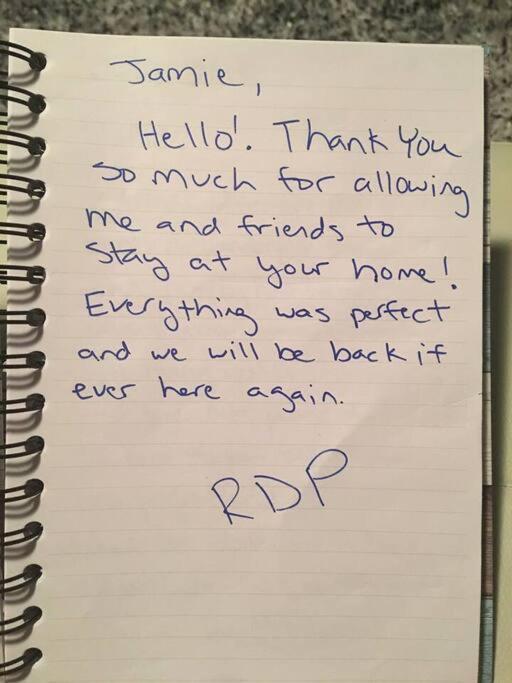 Jamie,
Hello! Thank You
so much for allowing
me and friends to
stay at your home!
Everything was perfect
and we will be back if
ever here again.
RDP